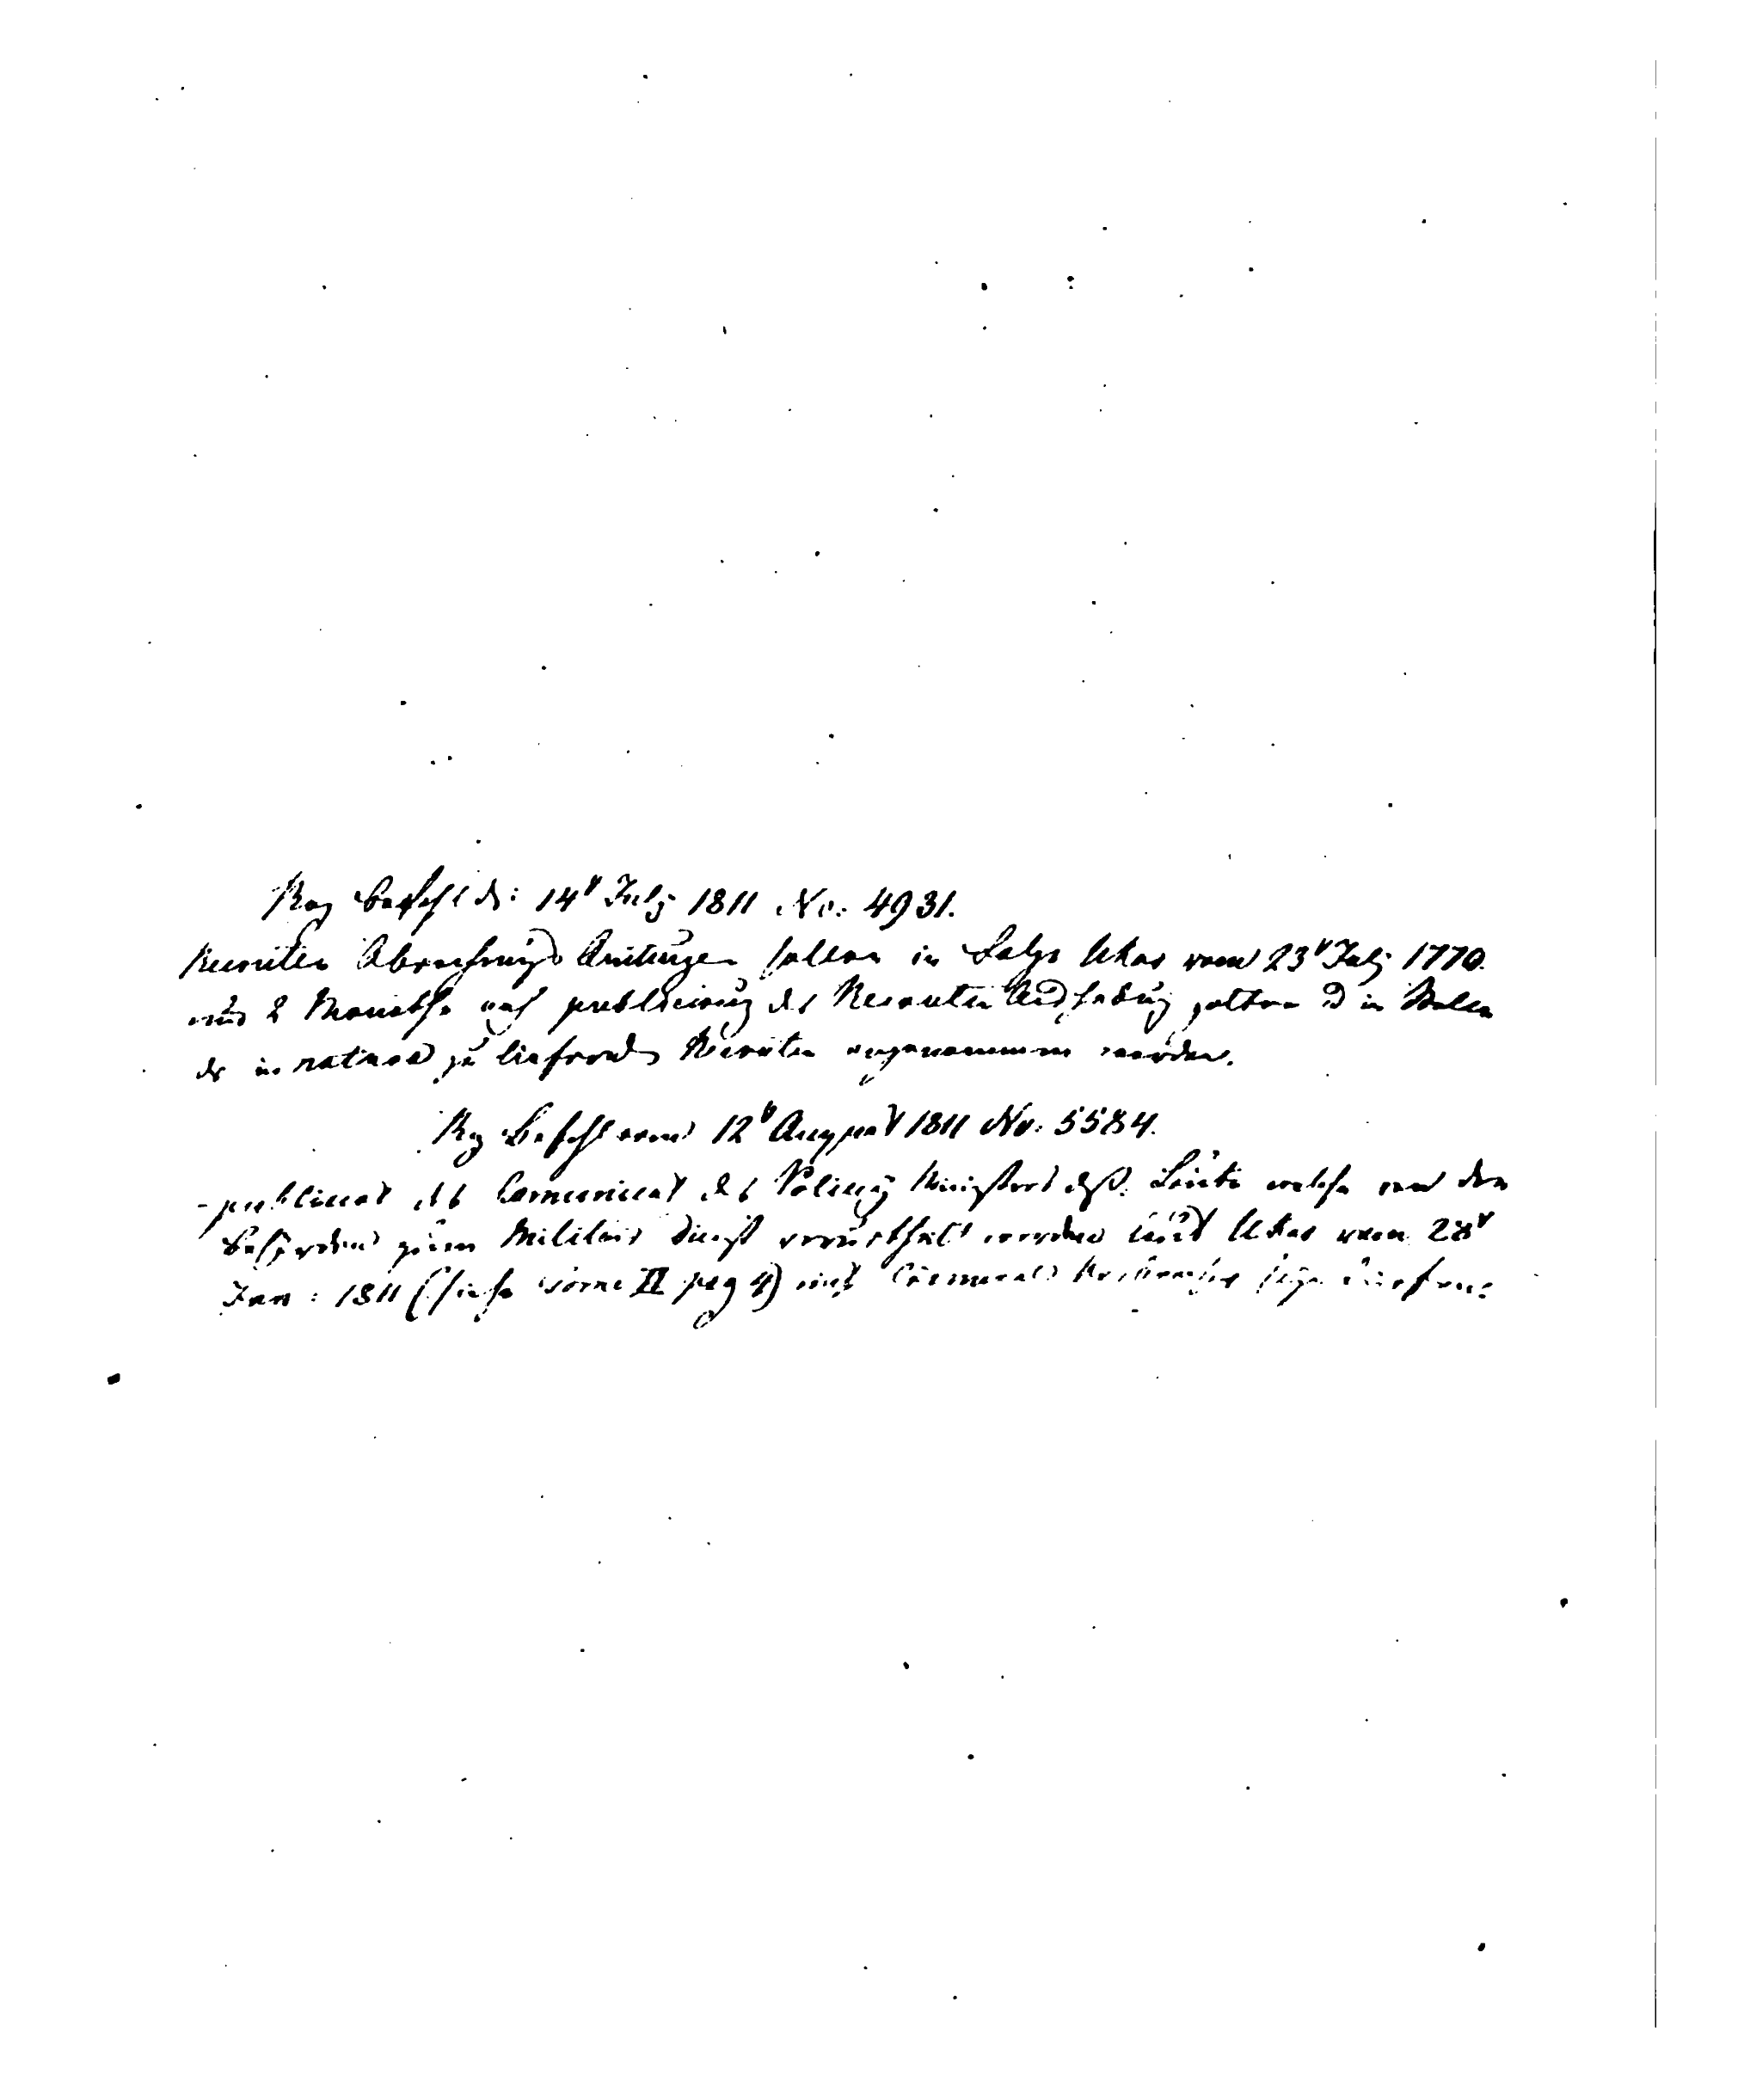 Reg Befehl d: 14t July 1811 No: 4931.
Recruten Abrechnungs Quitungen sollen in Folge Ukas vom 23t July 1770.
nur 2 Monathe nach publicirung der Recruten Aushebung gelten u in Stelle
der in natura zu liefernden Recruten angenommen werden.
Reg Befehl vom 12t August 1811 No: 5584.
publicat des Comunicat des Policey Ministers daß Leute welche von den
Behörden zum Militair Dienst verurtheilt werden laut Ukas vom 28t
Jan: 1811 (siehe vorne II pag 4) Criminal Verbrecher seyn dürfen: